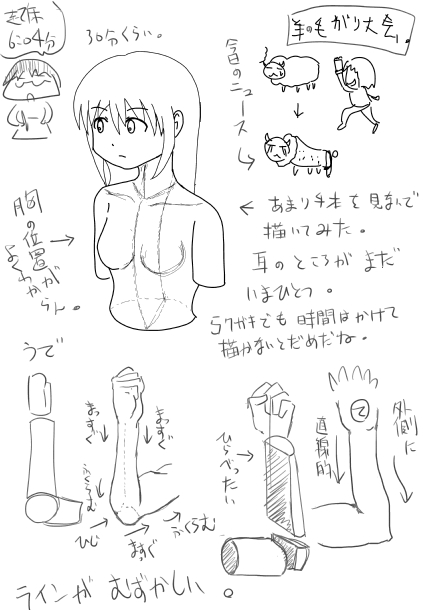 志て牛
6:04分
30分くらい。
羊の毛がり大会。
今日のニュース
← あまり手本を見ないで
描いてみた。
耳のところがまだ
いまひとつ。
ラクガキでも時間はかけて
描かないとだめだね。
胸の位置が
よくわから
らん。
うで
まっすぐ
まっすぐ
ふくらむ
ひじ
まっすぐ
ふくらむ
ひらべったい
直線的
外側に
て
ラインがむずかしい。